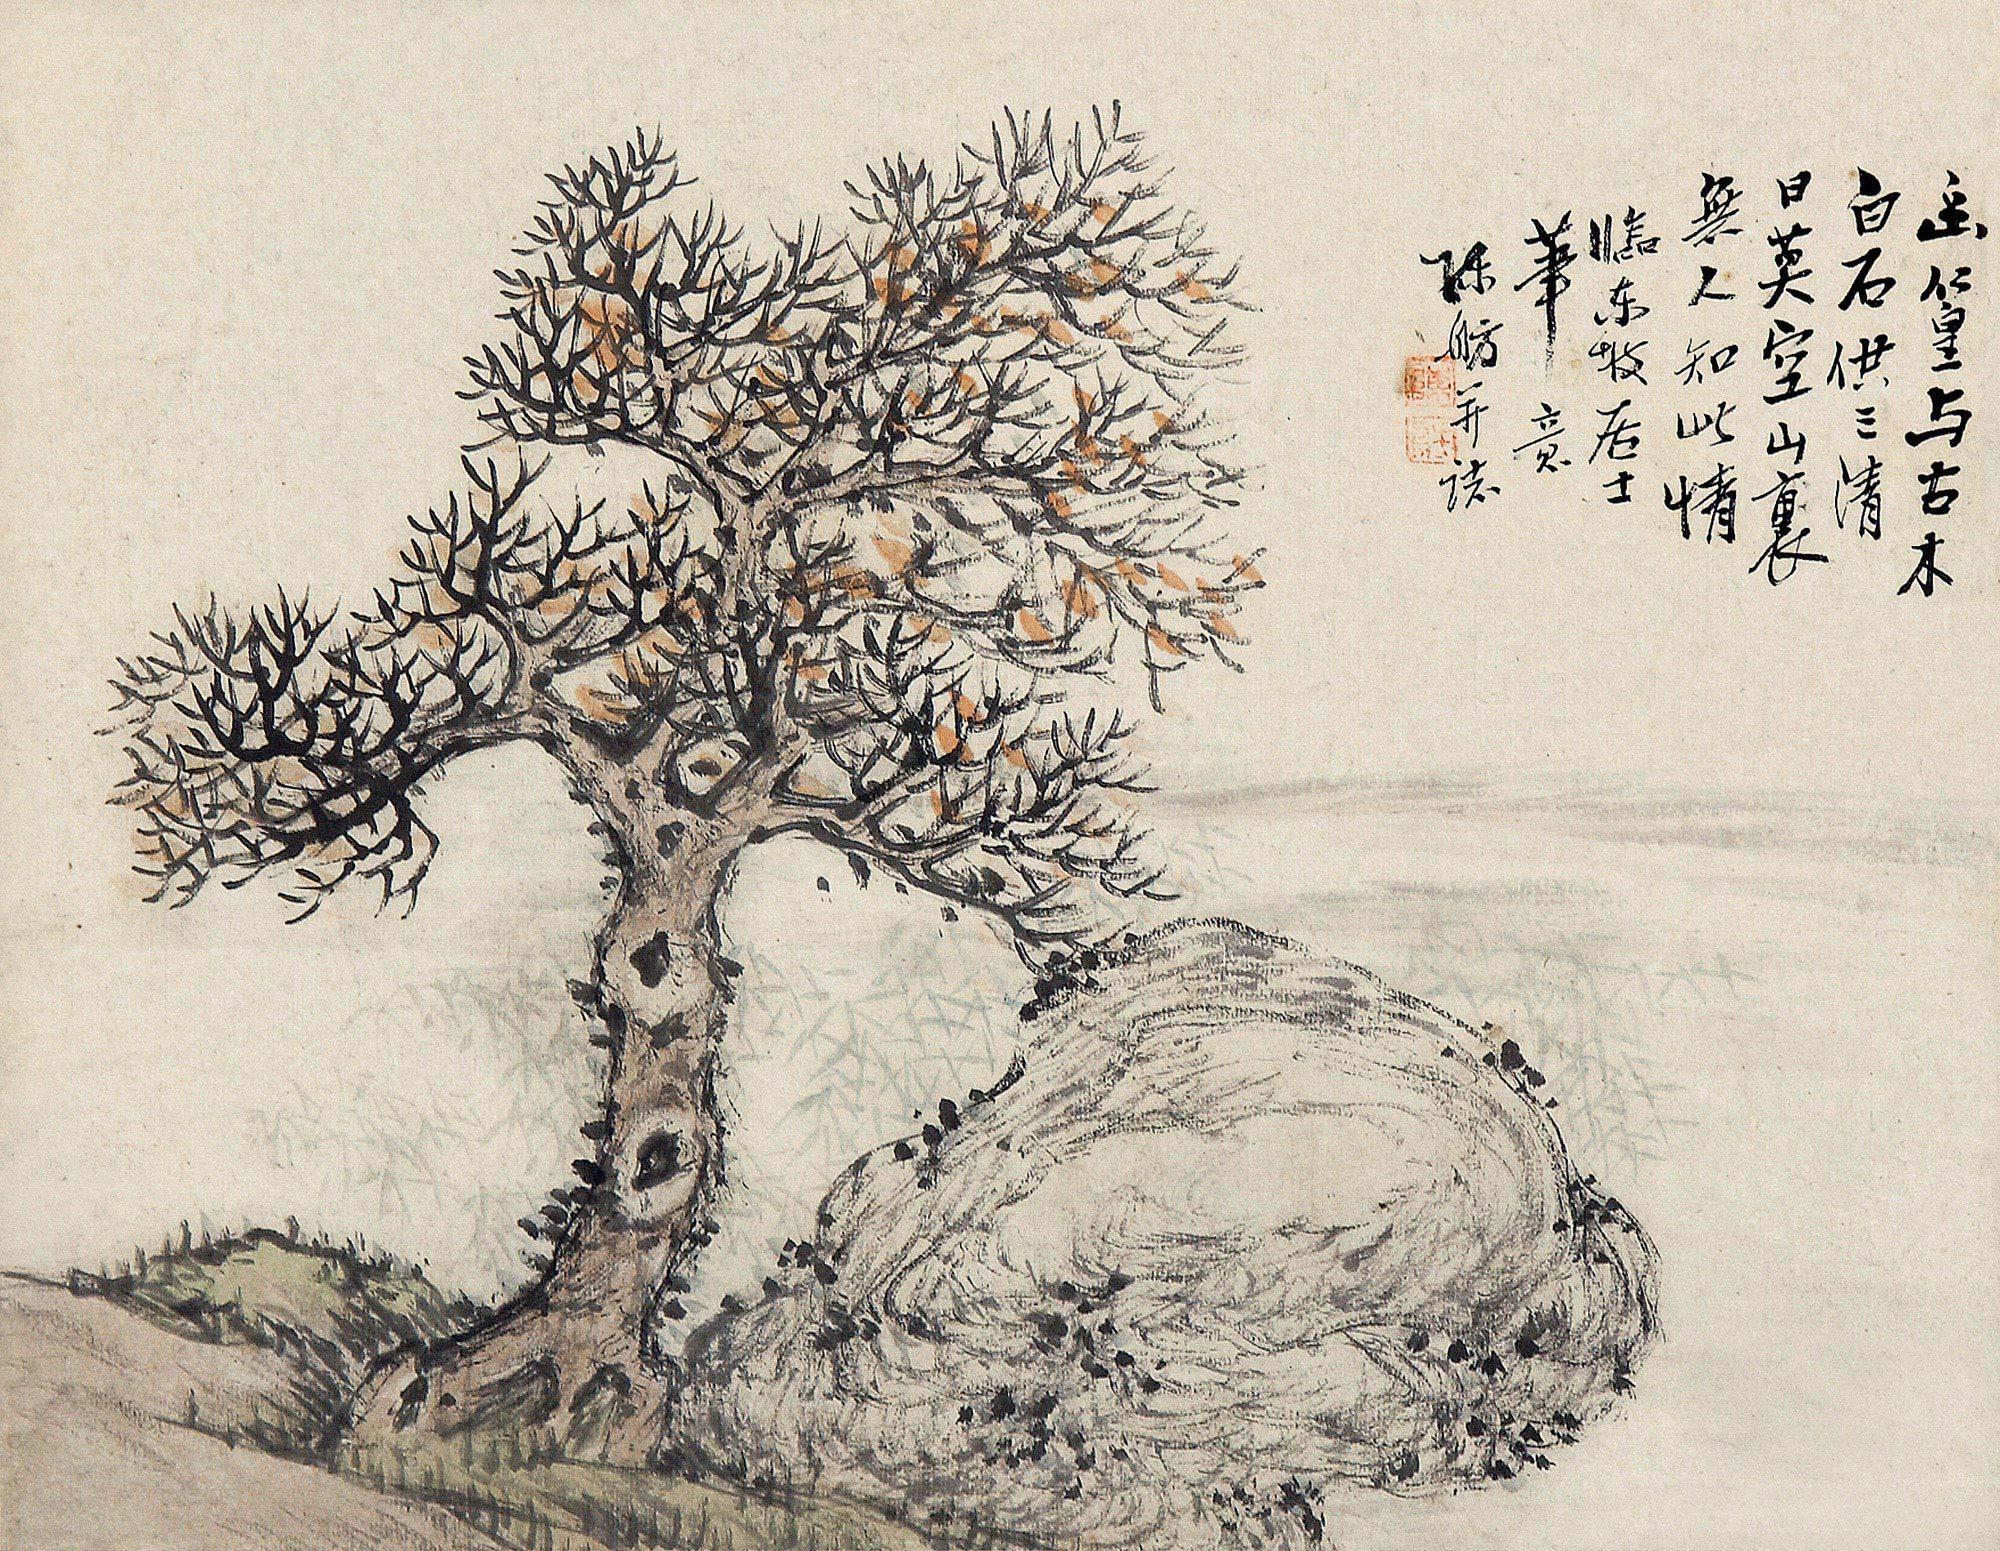 幽篁与古木
白石供三清
日莫空山裏
無人知此情
臨东坡居士
筆意
陈舫并誌